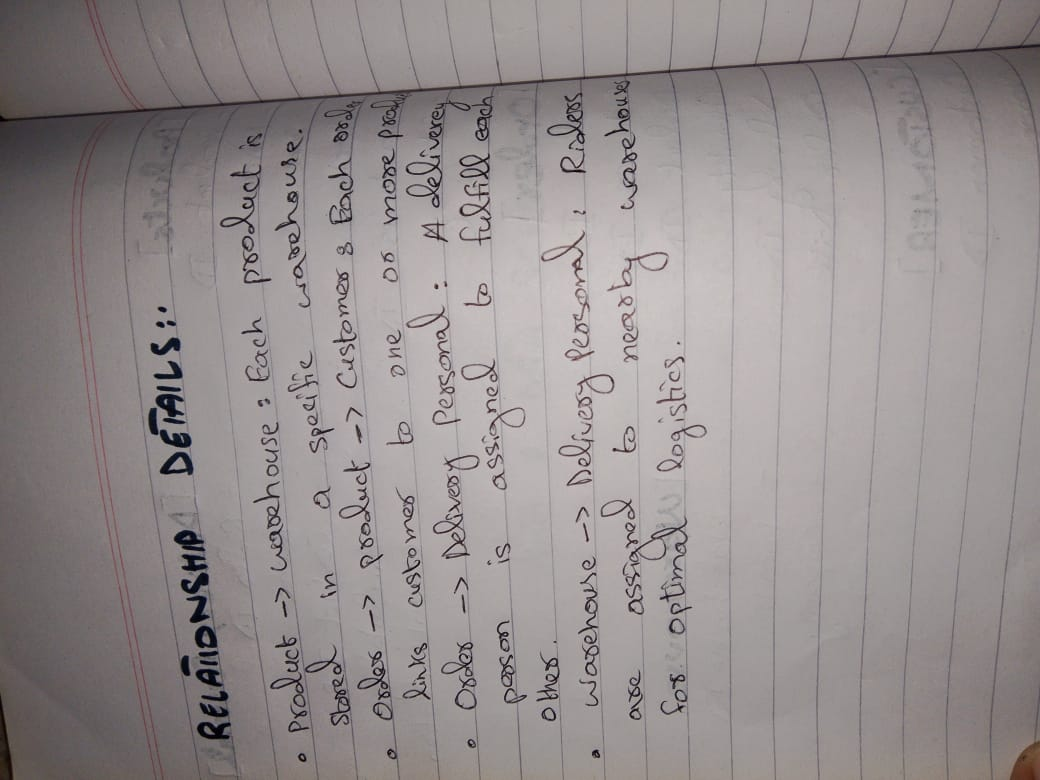 RELATIONSHIP DETAILS:.
• Product -> warehouse : Each product is
stored in a specific warehouse.
• Order -> product -> Customer : Each order
links customer to one or more
• Order -> Delivery Personal : A deliverey
person is assigned to fulfill each
other.
• warehouse -> Delivery Personal : Riders
are assigned to nearby warehouse
for optimal logistics.